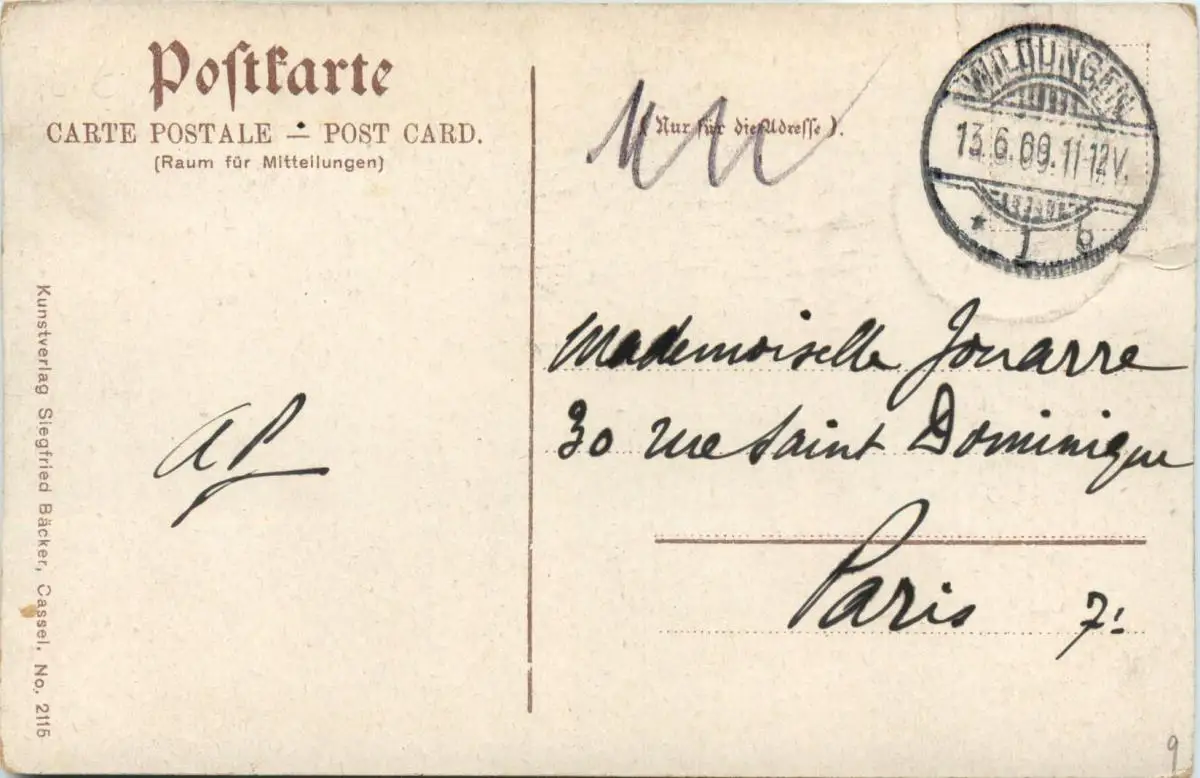 Postkarte
CARTE POSTALE – POST CARD.
(Raum für Mitteilungen)
(Nur für die Adresse).
WILDUNGEN
13.6.09.11-12V.
* 1 b
Mademoiselle Jouarre
30 rue Saint Dominique
Paris 7:
AP
Kunstverlag Siegfried Bäcker, Cassel. No. 2115
9